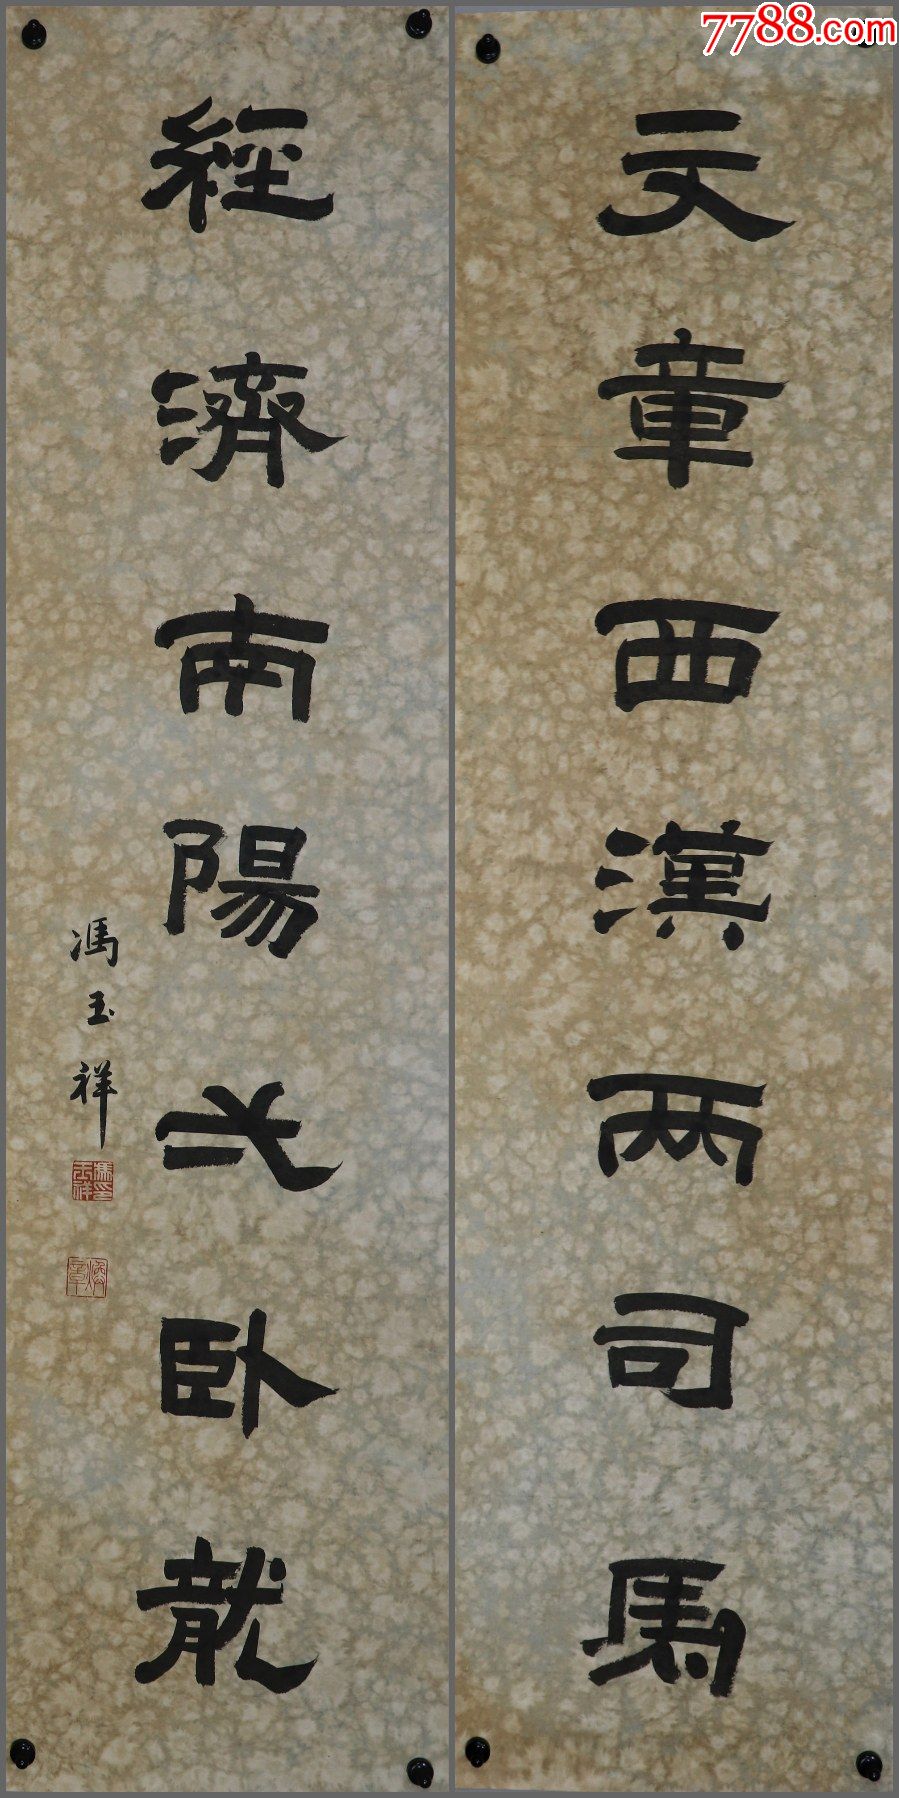 7788.com
文章西漢两司馬
經濟南陽弌卧龍
馮玉祥
馮玉祥印
焕章